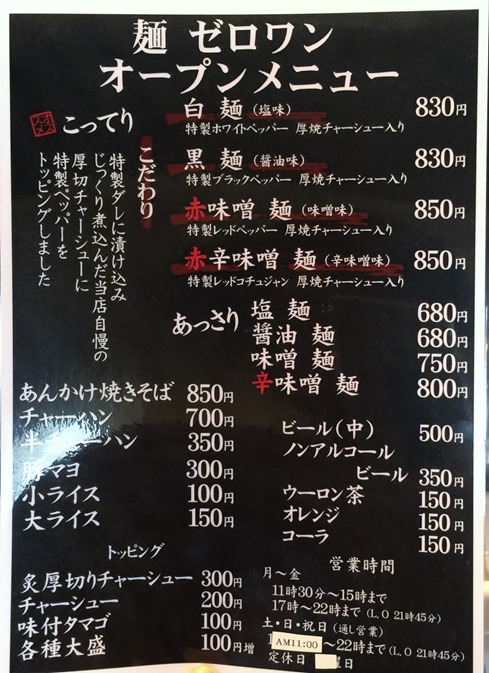 麺 ゼロワン
オープンメニュー
こってり
こだわり
特製ダレに漬け込み
じっくり煮込んだ当店自慢の
厚切チャーシューに
特製ペッパーを
トッピングしました
白 麺（塩味） 830円
特製ホワイトペッパー 厚焼チャーシュー入り
黒 麺（醬油味） 830円
特製ブラックペッパー 厚焼チャーシュー入り
赤味噌 麺（味噌味） 850円
特製レッドペッパー 厚焼チャーシュー入り
赤辛味噌 麺（辛味噌味） 850円
特製レッドコチュジャン 厚焼チャーシュー入り
あっさり
塩 麺 680円
醬油 麺 680円
味噌 麺 750円
辛味噌 麺 800円
あんかけ焼きそば 850円
チャーハン 700円
半チャーハン 350円
豚マヨ 300円
小ライス 100円
大ライス 150円
ビール（中） 500円
ノンアルコール
ビール 350円
ウーロン茶 150円
オレンジ 150円
コーラ 150円
トッピング
炙厚切りチャーシュー 300円
チャーシュー 200円
味付タマゴ 100円
各種大盛 100円増
営業時間
月～金
11時30分～15時まで
17時～22時まで（L.O 21時45分）
土・日・祝日（通し営業）
AM11:00～22時まで（L.O 21時45分）
定休日 曜日